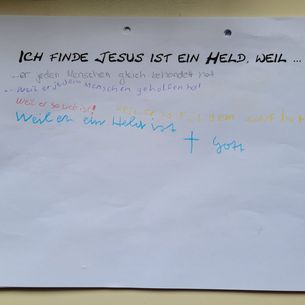 ICH FINDE JESUS IST EIN HELD, WEIL ...
...er jeden Menschen gleich behandelt hat
...Weil er jedem Menschen geholfen hat
Weil er so lieb ist!
Weil er ein Held ist
Gott